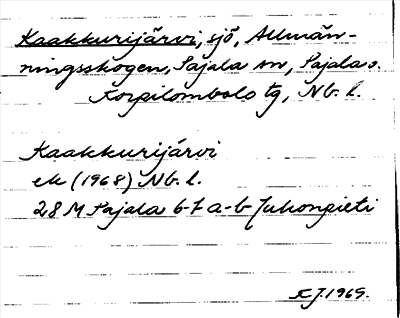 Kaakkurijärvi, sjö, Allmän-
ningsskogen, Pajala sn, Pajala o.
Korpilombolo tg, Nb. l.
Kaakkurijärvi
ek (1968) Nb. l.
28 M Pajala 6-7 a-b Juhonpieti
EJ. 1969.